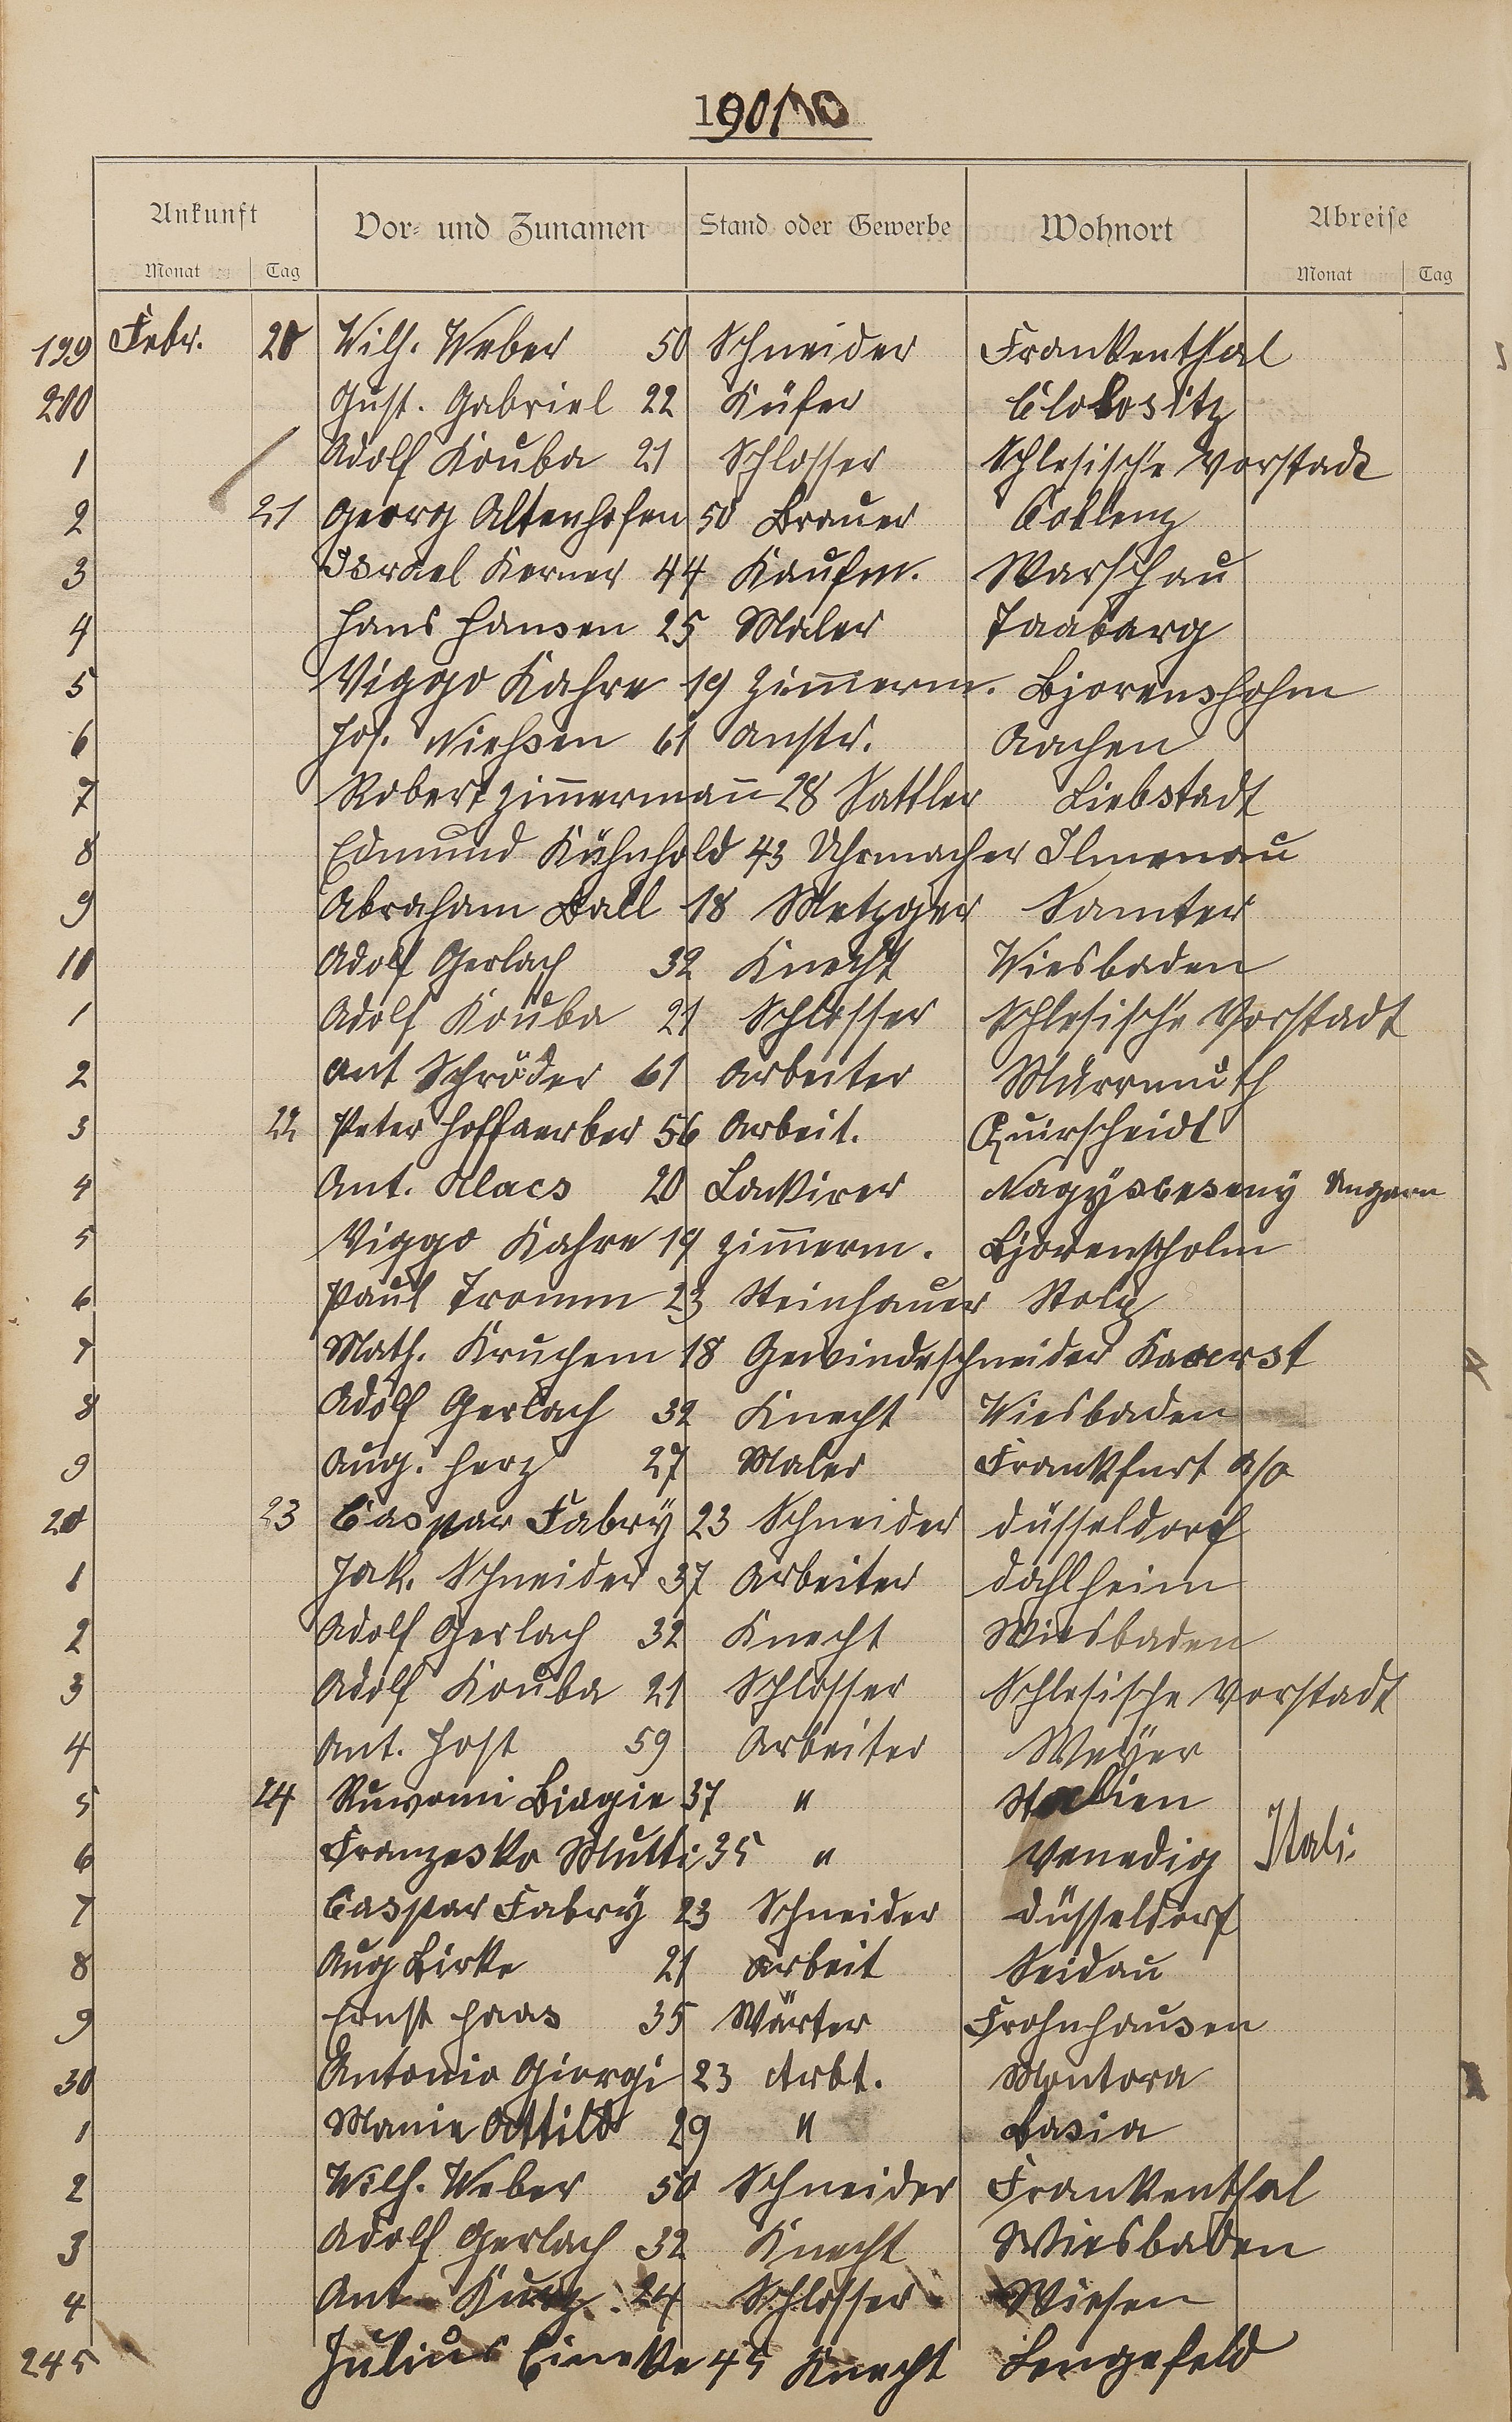 1901
Ankunft Vor- und Zunamen Stand oder Gewerbe Wohnort Abreise
Monat Tag Monat Tag
199 Febr. 20 Wilh. Weber 50 Schneider Frankenthal
200 Gust. Gabriel 22 Küfer
1 Adolf Kouba 21 Schlosser Schlesische Vorstadt
2 21 Georg Altenhofen 50 Brauer Coblenz
3 Israel Kerner 44 Kaufm. Warschau
4 Hans Hansen 25 Maler Taabarg
5 Viggo Kahre 19 Zimmerm. Bjorensholm
6 Jos. Nießen 61 Anstr. Aachen
7 Robert Zimmermann 28 Sattler Liebstadt
8 Edmund Kühnhold 43 Uhrmacher Ilmenau
9 Abraham Ball 18 Metzger Samter
10 Adolf Gerlach 32 Knecht Wiesbaden
1 Adolf Kouba 21 Schlosser Schlesische Vorstadt
2 Ant Schröder 61 Arbeiter
3 22 Peter 56 Arbeit. Quirscheidt
4 Ant. 20 Lackirer Ungarn
5 Viggo Kahre 19 Zimmerm. Bjorensholm
6 Paul Tromm 23 Steinhauer Stolp
7 Math. Kruchem 18 Gewindeschneider Kaarst
8 Adolf Gerlach 32 Knecht Wiesbaden
9 Aug. Herz 27 Maler Frankfurt a/o
20 23 Caspar Fabry 23 Schneider Düsseldorf
1 Jak. Schneider 37 Arbeiter Dahlheim
2 Adolf Gerlach 32 Knecht Wiesbaden
3 Adolf Kouba 21 Schlosser Schlesische Vorstadt
4 Ant. Jost 59 Arbeiter Weyer
5 24 Biagie 37 "
6 Franzesko Mutti 35 " Venedig Itali.
7 Caspar Fabry 23 Schneider Düsseldorf
8 Aug Birke 21 Arbeit Seidau
9 Ernst Haas 35 Wärter Frohnhausen
30 Antonio Giorgi 23 Arbt. Montora
1 Manie Attild 29 " Basia
2 Wilh. Weber 50 Schneider Frankenthal
3 Adolf Gerlach 32 Knecht Wiesbaden
4 Ant Kurz 24 Schlosser Wiesen
245 Julius Eineke 45 Knecht Lengefeld